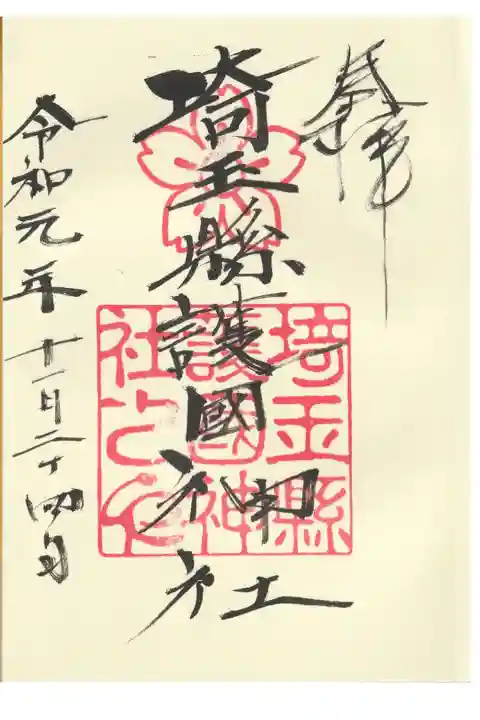 奉拝
埼玉縣護國神社
埼玉縣
護國神
社之印
令和元年十一月二十四日